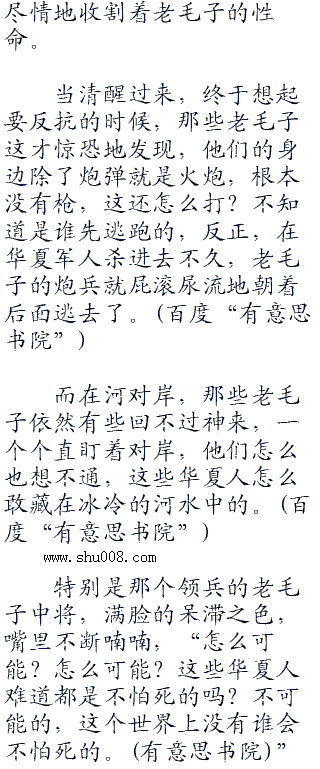 尽情地收割着老毛子的性
命。
当清醒过来，终于想起
要反抗的时候，那些老毛子
这才惊恐地发现，他们的身
边除了炮弹就是火炮，根本
没有枪，这还怎么打？不知
道是谁先逃跑的，反正，在
华夏军人杀进去不久，老毛
子的炮兵就屁滚尿流地朝着
后面逃去了。(百度“有意思
书院”)
而在河对岸，那些老毛
子依然有些回不过神来，一
个个直盯着对岸，他们怎么
也想不通，这些华夏人怎么
敢藏在冰冷的河水中的。(百
度“有意思书院”)
www.shu008.com
特别是那个领兵的老毛
子中将，满脸的呆滞之色，
嘴里不断喃喃，“怎么可
能？怎么可能？这些华夏人
难道都是不怕死的吗？不可
能的，这个世界上没有谁会
不怕死的。(有意思书院)”